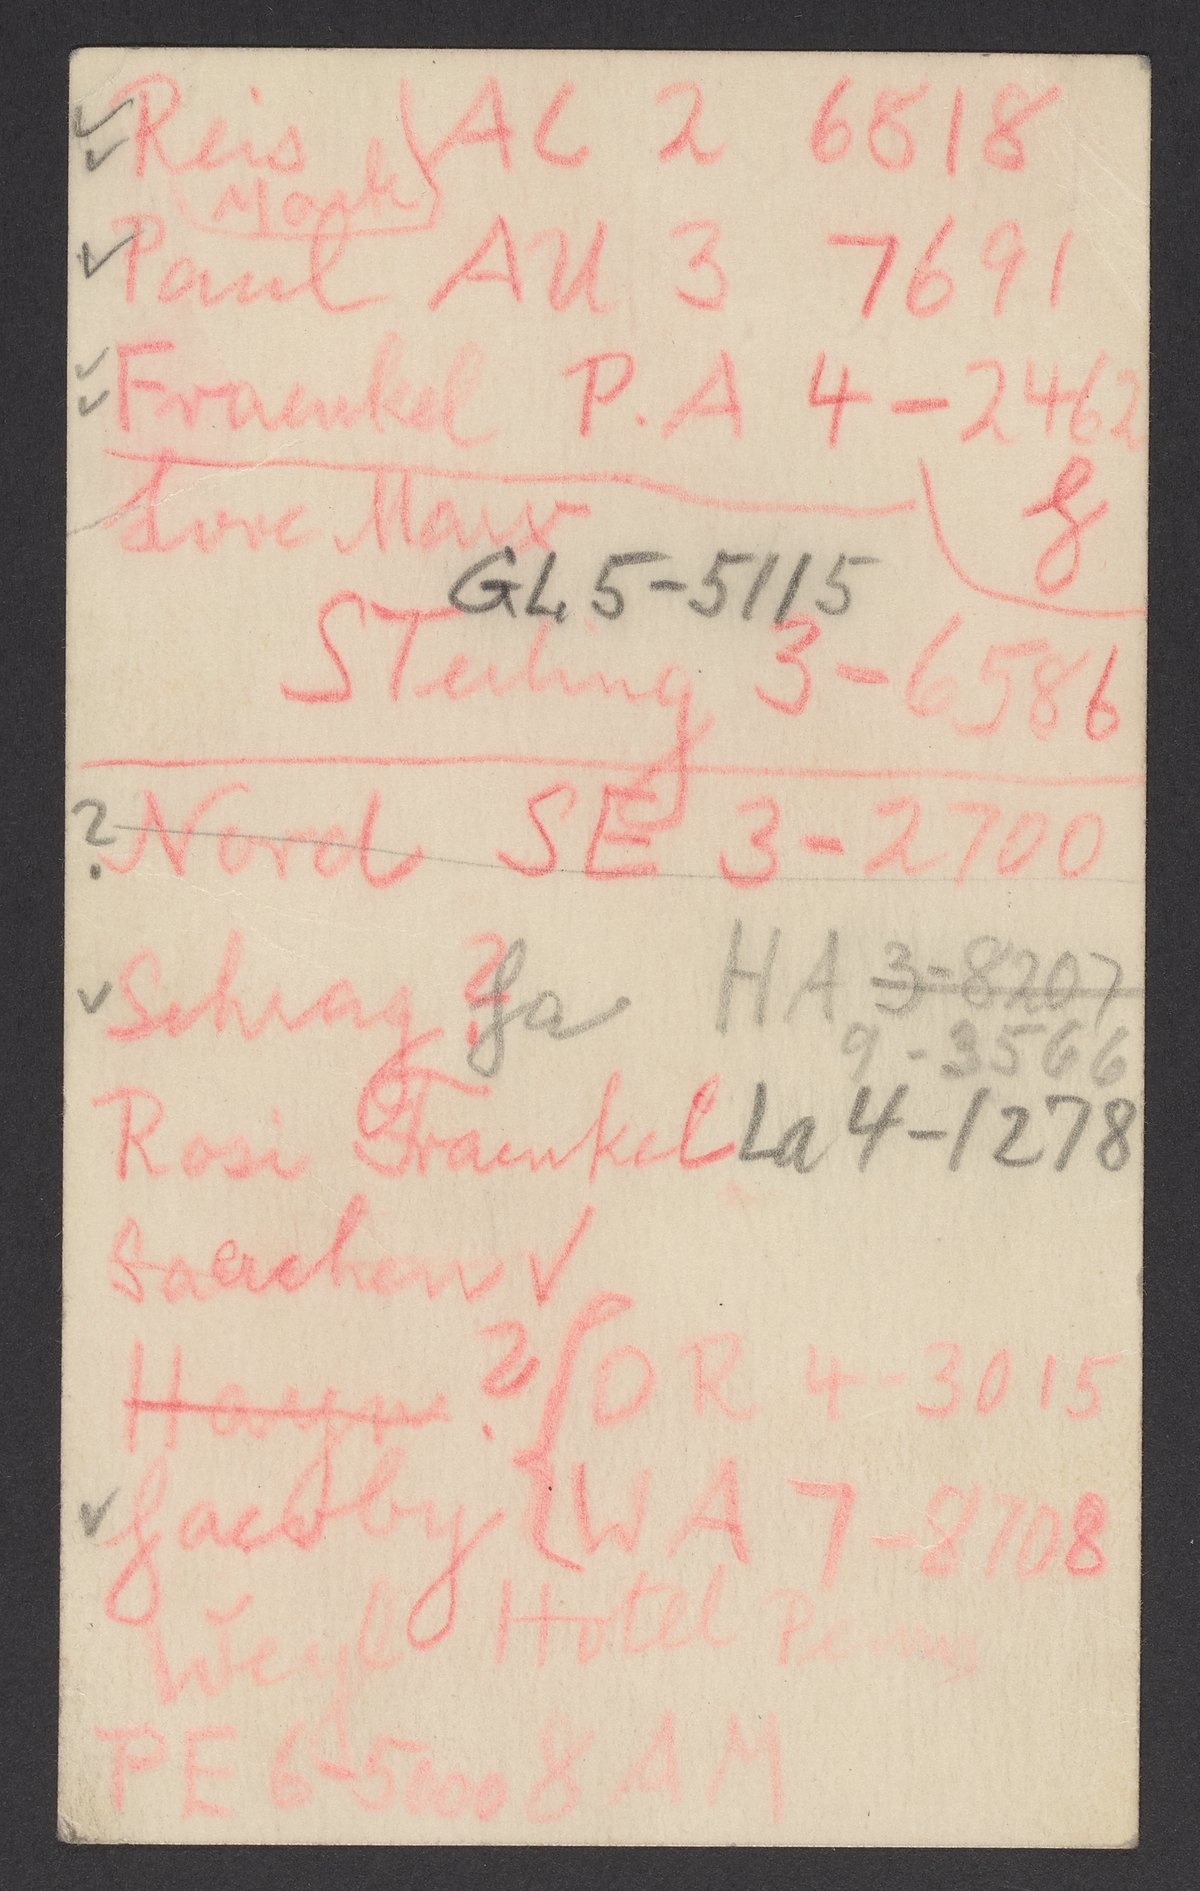 Reis AC 2 6818
Paul AU 3 7691
Fraenkel P.A 4-2462
Lore Marx
GL 5-5115
STerling 3-6586
? Nord SE 3-2700
Schrag ? Ja HA 3-8207
9-3566
Rosi Fraenkel La 4-1278
? OR 4-3015
Jacoby WA 7-8708
Weyl Hotel
PE 6-5000 8 AM